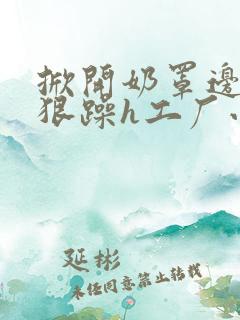 掀開奶罩邊
狠躁h工厂.
延彬
未任同意禁止轉載